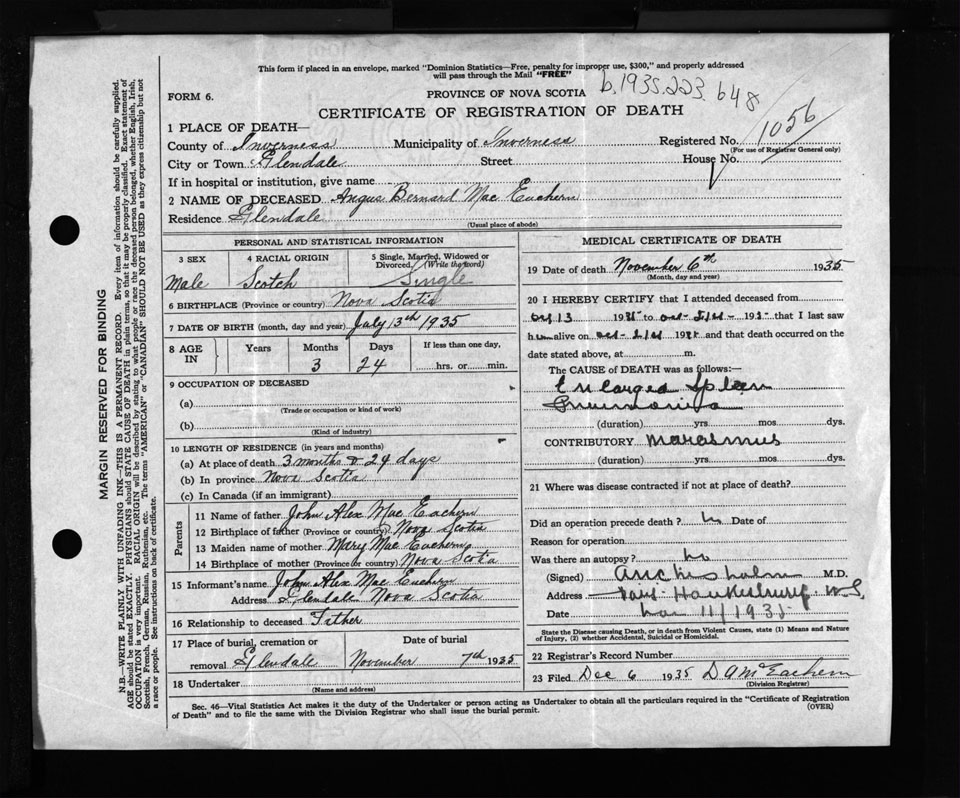 This form if placed in an envelope, marked "Dominion Statistics—Free, penalty for improper use, $300," and properly addressed
will pass through the Mail "FREE"
b.1935.223.648
FORM 6.
PROVINCE OF NOVA SCOTIA
CERTIFICATE OF REGISTRATION OF DEATH
1056
1 PLACE OF DEATH—
County of Inverness Municipality of Inverness Registered No.
(For use of Registrar General only)
City or Town Glendale Street House No.
If in hospital or institution, give name
2 NAME OF DECEASED Angus Bernard Mac Eachern
Residence Glendale
(Usual place of abode)
PERSONAL AND STATISTICAL INFORMATION
3 SEX 4 RACIAL ORIGIN 5 Single, Married, Widowed or
Divorced. (Write the word)
Male Scotch Single
6 BIRTHPLACE (Province or country) Nova Scotia
7 DATE OF BIRTH (month, day and year) July 13th 1935
8 AGE IN Years Months Days If less than one day,
3 24 hrs. or min.
9 OCCUPATION OF DECEASED
(a)
(Trade or occupation or kind of work)
(b)
(Kind of industry)
10 LENGTH OF RESIDENCE (in years and months)
(a) At place of death 3 months & 24 days
(b) In province Nova Scotia
(c) In Canada (if an immigrant)
Parents
11 Name of father John Alex Mac Eachern
12 Birthplace of father (Province or country) Nova Scotia
13 Maiden name of mother Mary Mac Eachern
14 Birthplace of mother (Province or country) Nova Scotia
15 Informant's name John Alex Mac Eachern
Address Glendale Nova Scotia
16 Relationship to deceased Father
17 Place of burial, cremation or Date of burial
removal Glendale November 7th 1935
18 Undertaker
(Name and address)
MEDICAL CERTIFICATE OF DEATH
19 Date of death November 6th 1935
(Month, day and year)
20 I HEREBY CERTIFY that I attended deceased from
193 to oct 193 that I last saw
h alive on oct 193 and that death occurred on the
date stated above, at m.
The CAUSE OF DEATH was as follows:—
Enlarged Spleen
Pneumonia
(duration) yrs. mos. dys.
CONTRIBUTORY Marasmus
(duration) yrs. mos. dys.
21 Where was disease contracted if not at place of death?
Did an operation precede death? no Date of
Reason for operation
Was there an autopsy? no
(Signed) M.D.
Address Port Hawkesbury N.S.
Date 11/1935
State the Disease causing Death, or in death from Violent Causes, state (1) Means and Nature
of Injury, (2) whether Accidental, Suicidal or Homicidal.
22 Registrar's Record Number
23 Filed Dec 6 1935 D A McEachern
(Division Registrar)
Sec. 46—Vital Statistics Act makes it the duty of the Undertaker or person acting as Undertaker to obtain all the particulars required in the "Certificate of Registration
of Death" and to file the same with the Division Registrar who shall issue the burial permit.
(OVER)
MARGIN RESERVED FOR BINDING
N.B.—WRITE PLAINLY WITH UNFADING INK—THIS IS A PERMANENT RECORD. Every item of information should be carefully supplied.
AGE should be stated EXACTLY. PHYSICIANS should STATE CAUSE OF DEATH in plain terms, so that it may be properly classified. Exact statement of
OCCUPATION is very important. RACIAL ORIGIN will be described by stating to what people or race the deceased person belonged, whether English, Irish,
Scottish, French, German, Russian, Ruthenian, etc. The terms "AMERICAN" or "CANADIAN" SHOULD NOT BE USED as they express citizenship but not
a race or people. See instructions on back of certificate.